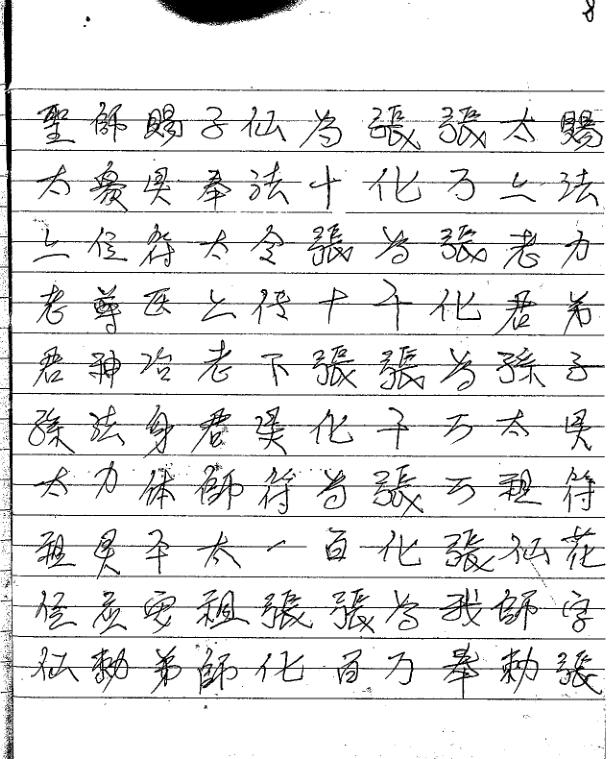 賜法力弟子灵符花字張
太上老君孫太祖仙師勅
張万張化為万万張我奉
張化為千張千張化為万
為十張十張化為百張百
仙法令传下灵符一張化
子奉太上老君師太祖師
賜灵符医治身体平安弟
師眾位尊神法力灵应勅
聖太上老君孫太祖位仙